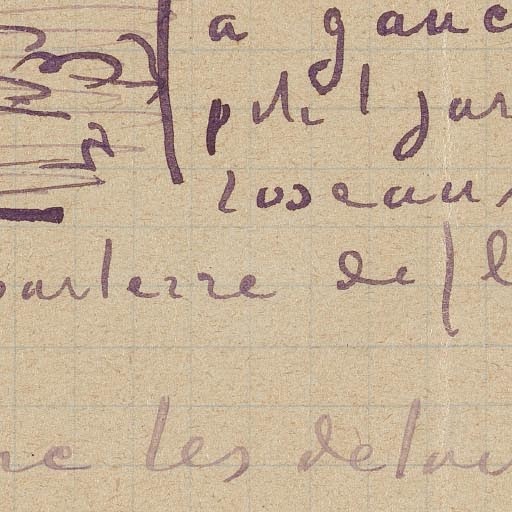 a gauc
petit jar
roseaux
parterre de l
ne les detai